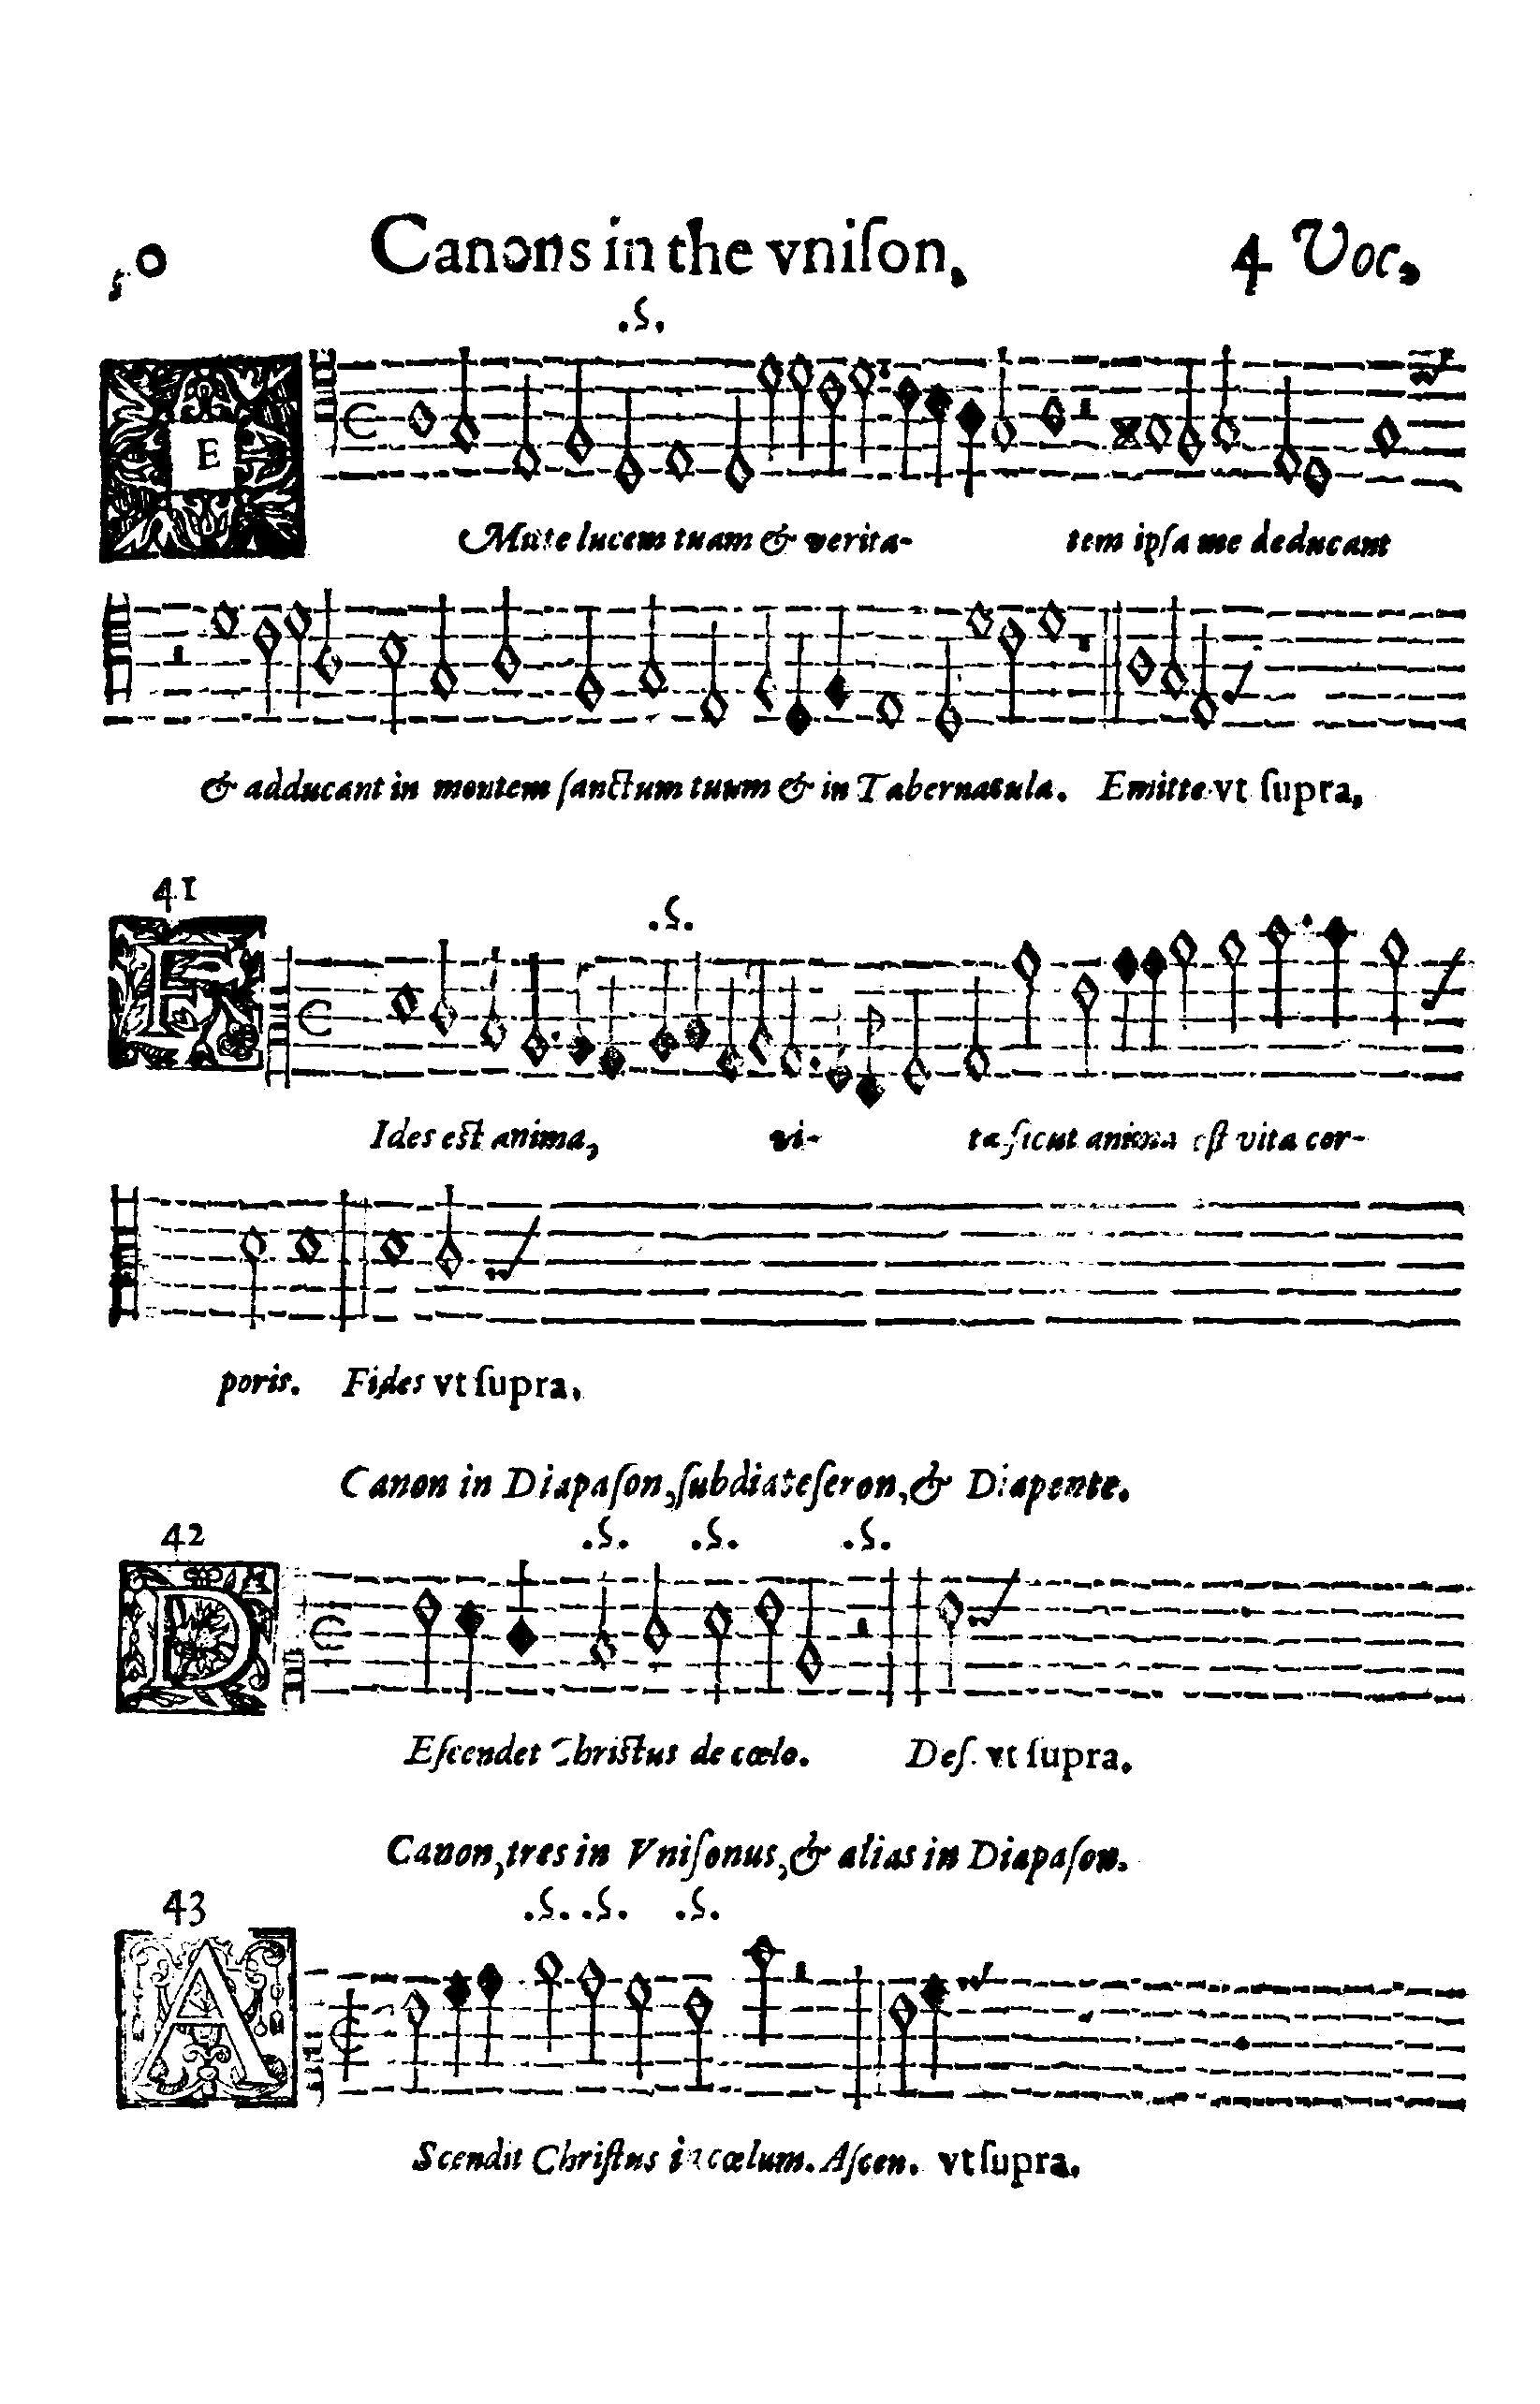 50 Canons in the vniſon, 4 Voc,
.S.
E
Mitte lucem tuam & verita- tem ipſa me deducant
& adducant in montem ſanctum tuum & in Tabernacula. Emitte vt ſupra,
41
.S.
F
Ides est anima, vi- ta ſicut anima eſt vita cor-
poris. Fides vt ſupra.
Canon in Diapaſon,ſubdiateſeron,& Diapente.
42
.S. .S. .S.
D
Eſcendet Chriſtus de cœlo. Deſ. vt ſupra.
Canon,tres in Vniſonus,& alias in Diapaſon.
43
.S. .S. .S.
A
Scendit Chriſtus in cœlum. Aſcen. vt ſupra.